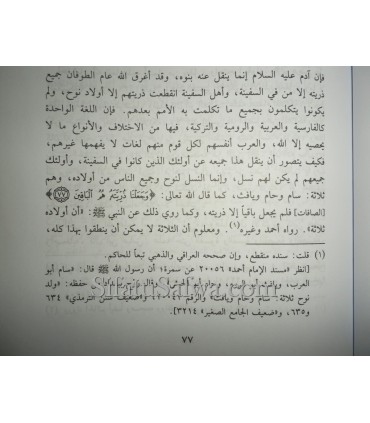 فإن آدم عليه السلام إنما ينقل عنه بنوه، وقد أغرق الله عام الطوفان جميع
ذريته إلا من في السفينة، وأهل السفينة انقطعت ذريتهم إلا أولاد نوح، ولم
يكونوا يتكلمون بجميع ما تكلمت به الأمم بعدهم. فإن اللغة الواحدة
كالفارسية والعربية والرومية والتركية، فيها من الاختلاف والأنواع ما لا
يحصيه إلا الله، والعرب أنفسهم لكل قوم منهم لغات لا يفهمها غيرهم،
فكيف يتصور أن ينقل هذا جميعه عن أولئك الذين كانوا في السفينة، وأولئك
جميعهم لم يكن لهم نسل، وإنما النسل لنوح وجميع الناس من أولاده، وهم
ثلاثة: سام وحام ويافث، كما قال الله تعالى: ﴿وَجَعَلْنَا ذُرِّيَّتَهُ هُمُ الْبَاقِينَ ﴿٧٧﴾﴾
[الصافات] فلم يجعل باقياً إلا ذريته، وكما روي ذلك عن النبي ﷺ: «أن أولاده
ثلاثة». رواه أحمد وغيره(١). ومعلوم أن الثلاثة لا يمكن أن ينطقوا بهذا كله،
(١) قلت: سنده منقطع، وإن صححه العراقي والذهبي تبعاً للحاكم.
[انظر «مسند الإمام أحمد» ٢٠٠٥٦ عن سمرة: أن رسول الله ﷺ قال: «سام أبو
العرب، ويافث أبو الروم، وحام أبو الحبش» وقال
حفظه: «ولد
نوح ثلاثة: سام وحام ويافث»
«ضعيف سنن الترمذي» ٦٣٤
و٦٣٥، و«ضعيف الجامع الصغير» ٣٢١٤].
ShamSalwa.com
٧٧